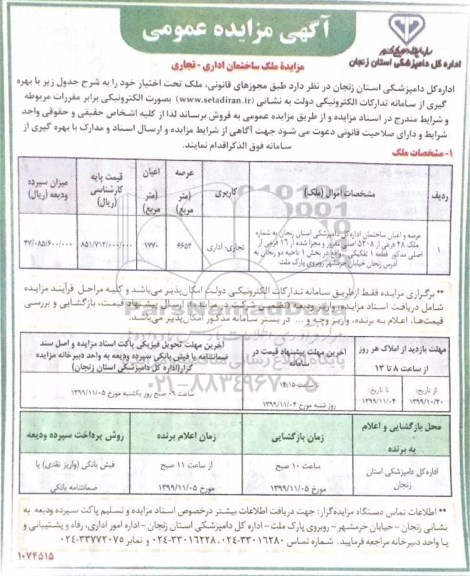 آگهی مزایده عمومی
اداره کل دامپزشکی استان زنجان
مزایدهٔ ملک ساختمان اداری - تجاری
اداره‌کل دامپزشکی استان زنجان در نظر دارد طبق مجوزهای قانونی، ملک تحت اختیار خود را به شرح جدول زیر با بهره
گیری از سامانه تدارکات الکترونیکی دولت به نشانی (www.setadiran.ir) بصورت الکترونیکی برابر مقررات مربوطه
و شرایط مندرج در اسناد مزایده و از طریق مزایده عمومی به فروش برساند لذا از کلیه اشخاص حقیقی و حقوقی واجد
شرایط و دارای صلاحیت قانونی دعوت می شود جهت آگاهی از شرایط مزایده و ارسال اسناد و مدارک با بهره گیری از
سامانه فوق الذکر اقدام نمایند.
۱- مشخصات ملک
ردیف
مشخصات اموال (ملک)
کاربری
عرصه (متر مربع)
اعیان (متر مربع)
قیمت پایه کارشناسی (ریال)
میزان سپرده ودیعه (ریال)
۱
عرصه و اعیان ساختمان اداره کل دامپزشکی استان زنجان به شماره
ملک ۴۸ فرعی از ۵۲۰۸ اصلی مفروز و مجزا شده از ۱۶ فرعی از
اصلی مذکور قطعه ۱ تفکیکی واقع در بخش ۱ ناحیه دو زنجان به
آدرس زنجان خیابان خرمشهر روبروی پارک ملت
تجاری- اداری
۶۶۵۴
۱۷۷۰
۸۵۱/۷۱۲/۰۰۰/۰۰۰
۴۷/۰۸۵/۶۰۰/۰۰۰
** برگزاری مزایده فقط از طریق سامانه تدارکات الکترونیکی دولت امکان‌پذیر می‌باشد و کلیه مراحل فرآیند مزایده
شامل دریافت اسناد مزایده، واریز ودیعه (تضمین شرکت در مزایده)، ارسال پیشنهاد قیمت، بازگشایی و بررسی
قیمت‌ها، اعلام به برنده، واریز وجه و ... در بستر سامانه مذکور امکان‌پذیر می‌باشد.
مهلت بازدید از املاک هر روز
از ساعت ۸ تا ۱۳
آخرین مهلت پیشنهاد قیمت در
سامانه
آخرین مهلت تحویل فیزیکی پاکت اسناد مزایده و اصل سند
ضمانتنامه یا فیش بانکی سپرده ودیعه به واحد دبیرخانه مزایده
گزار(اداره کل دامپزشکی استان زنجان)
از تاریخ:
۱۳۹۹/۱۰/۲۰
تا تاریخ:
۱۳۹۹/۱۱/۰۴
ساعت ۱۴:۱۵
روز شنبه مورخ ۱۳۹۹/۱۱/۰۴
ساعت ۰۹ صبح روز یکشنبه مورخ ۱۳۹۹/۱۱/۰۵
محل بازگشایی و اعلام
به برنده
زمان بازگشایی
زمان اعلام برنده
روش پرداخت سپرده ودیعه
اداره کل دامپزشکی استان
زنجان
ساعت ۱۰ صبح
مورخ ۱۳۹۹/۱۱/۰۵
از ساعت ۱۱ صبح
مورخ ۱۳۹۹/۱۱/۰۵
فیش بانکی (واریز نقدی) یا
ضمانتنامه بانکی
** اطلاعات تماس دستگاه مزایده‌گزار: جهت دریافت اطلاعات بیشتر درخصوص اسناد مزایده و تسلیم پاکت سپرده ودیعه به
نشانی زنجان - خیابان خرمشهر - روبروی پارک ملت - اداره کل دامپزشکی استان زنجان - اداره امور اداری، رفاه و پشتیبانی و
یا واحد دبیرخانه مراجعه فرمایید. شماره تماس ۳۳۰۱۶۲۸۰-۰۲۴ ۳۳۰۱۶۲۲۸-۰۲۴ و نمابر ۳۳۷۷۲۰۷۵-۰۲۴
۱۰۷۴۵۱۵
ParsNamadData
۰۲۱-۸۸۳۴۹۶۷۰